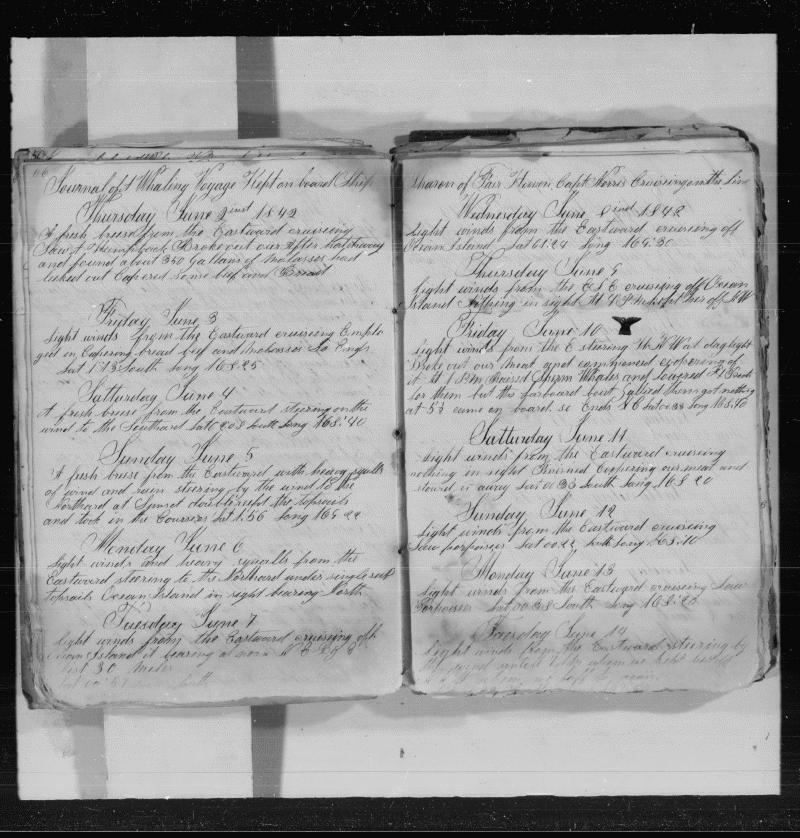 Journal of A Whaling Voyage Kept on board Ship
Thursday June 2 inst 1842
A fresh breese from the Eastward cruiseing
Saw A Humpback Broke out our After hatchway
and found about 350 Gallons of Molasses had
leaked out Coopered Some beef and Bread
Friday June 3
Light winds from the Eastward cruiseing Emplo
yed in Coopering bread beef and molasses So Ends
Lat 1 13 South Long 168:25
Satturday June 4
A fresh breese from the Eastward steering on the
wind to the Southard Lat 0 South Long 168:40
Sunday June 5
A fresh breese from the Eastward with heavy squalls
of wind and rain steering by the wind to the
Northard at Sunset double reeft the topsails
and took in the Courses Lat 1:56 Long 169 22
Monday June 6
Light winds and heavy squalls from the
Eastward steering to the Northard under single reef
topsails Ocean Island in sight bearing North
Tuesday June 7
Light winds from the Eastward cruiseing off
Ocean Island it bearing at noon N E By E
dist 30 miles
Sharon of Fair Haven Capt Norris Cruiseing on the Line
Wednesday June 8 inst 1842
Light winds from the Eastward cruiseing off
Ocean Island Lat 01:24 Long 169:30
Thursday June 9
Light winds from the E S E cruiseing off Ocean
Island Nothing in sight At
Friday June 10
Light winds from the E steering W N W at daylight
Broke out our meat and commenced coopering of
it At 1 PM raised Sperm Whales and lowered
for them but the larboard boat galied them got nothing
at 5½ came on board so Ends Lat 00 38 Long 168:40
Satturday June 11
Light winds from the Eastward cruiseing
nothing in sight finished Coopering our meat and
stowed it away Lat 00 33 South Long 168 20
Sunday June 12
Light winds from the Eastward cruiseing
Saw porpoises Lat 00 22 South Long 168:10
Monday June 13
Light winds from the Eastward cruiseing Saw
Porpoises Lat 00 38 South Long 168:25
Tuesday June 14
Light winds from the Eastward steering by
the wind